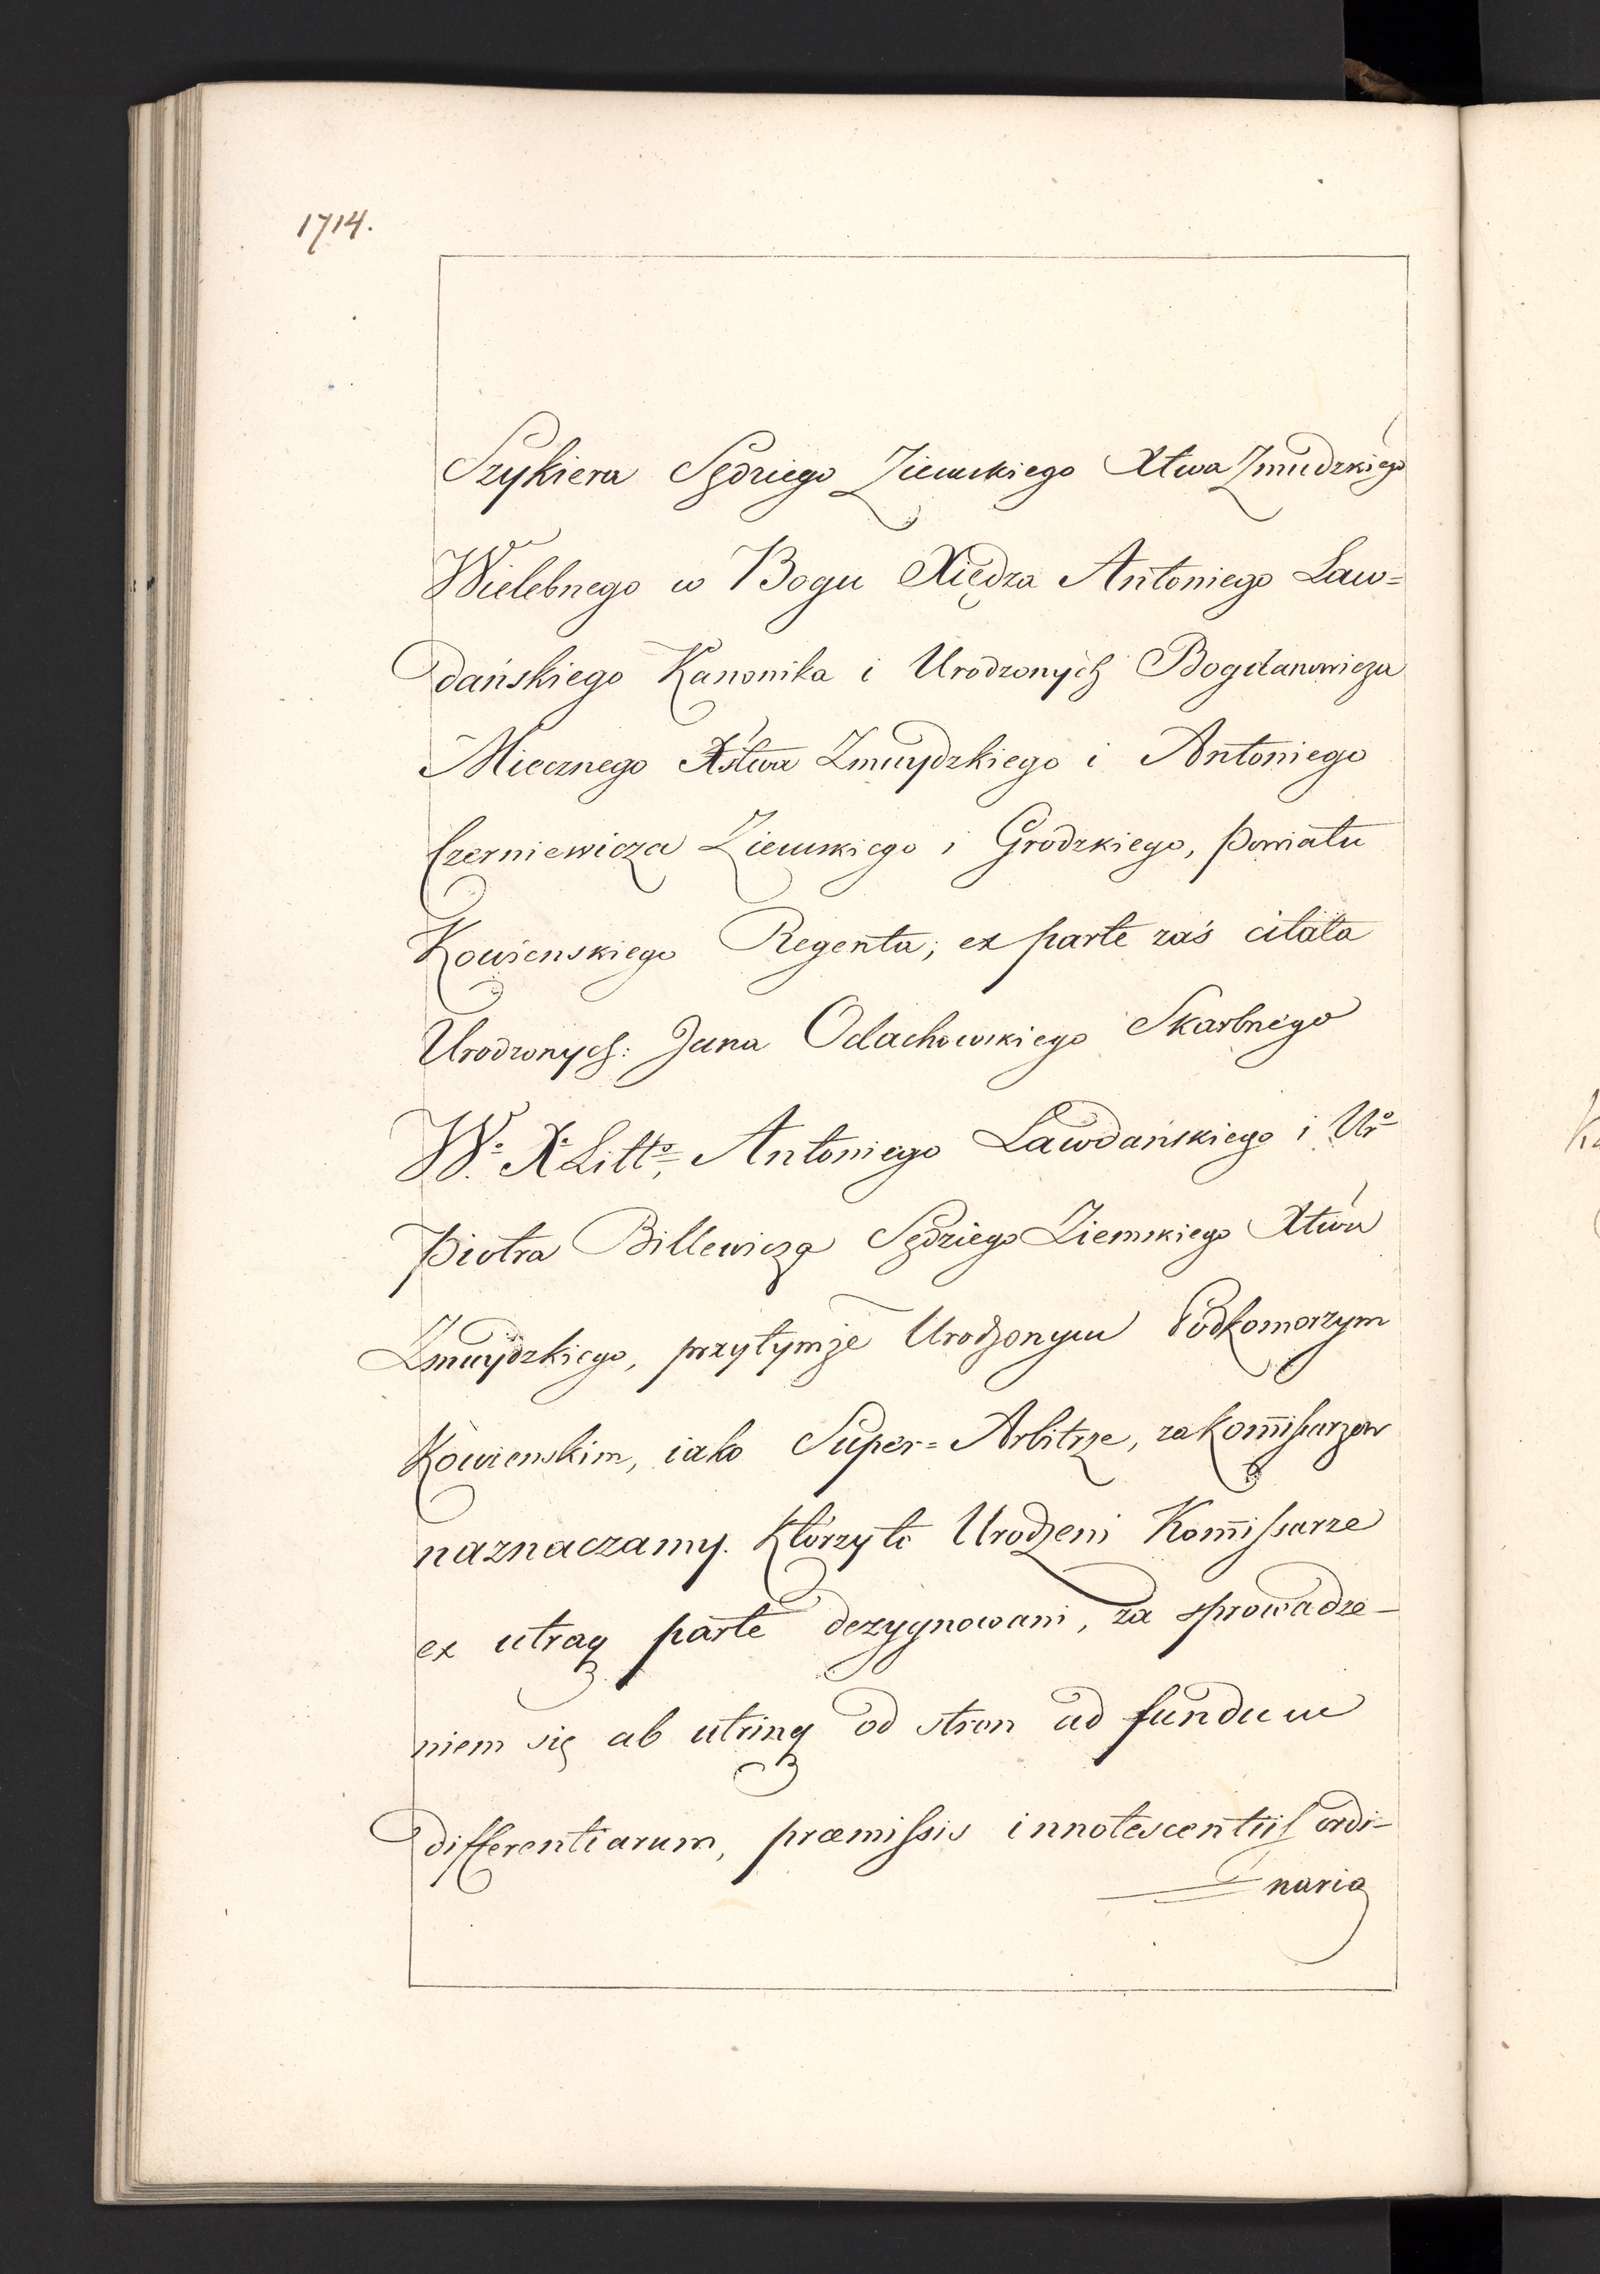 1714.
Szykiera Sędziego Ziemskiego Xtwa Zmudzkiego
Wielebnego w Bogu Xiędza Antoniego Law=
dańskiego Kanonika i Urodzonych Bogdanowicza
Miecznego Xstwa Zmuydzkiego i Antoniego
Czerniewicza Ziemskiego i Grodzkiego, Powiatu
Kowienskiego Regenta; ex parte zaś citata
Urodzonych: Jana Odachowskiego Skarbnego
Wo. X. Litto, Antoniego Lawdańskiego i Uro
Piotra Billewicza Sędziego Ziemskiego Xtwa
Zmuydzkiego, przytymże Urodzonym Podkomorzym
Kowienskim, iako Super=Arbitrze, za Kom̅issarzow
naznaczamy. Którzy to Urodzeni Kom̅issarze
ex utraq parte dezygnowani, za sprowadze-
niem się ab utrinq od stron ad fundum
differentiarum, præmissis innotescentiis ordi-
naria